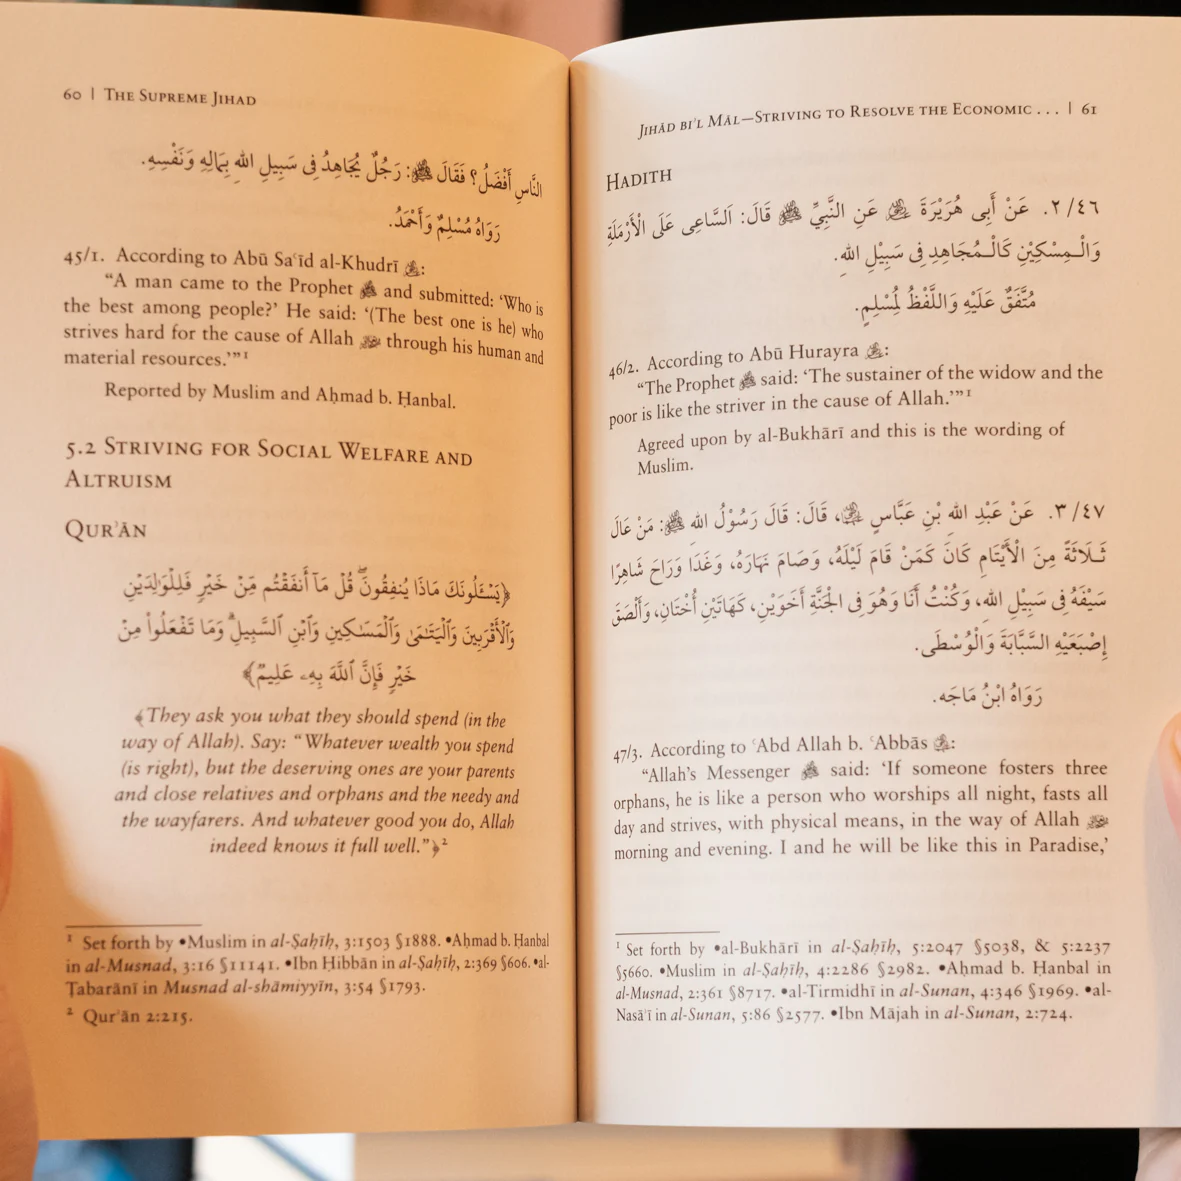 60 | THE SUPREME JIHAD
النَّاسِ أَفْضَلُ؟ فَقَالَ ﷺ: رَجُلٌ يُجَاهِدُ فِى سَبِيلِ اللهِ بِمَالِهِ وَنَفْسِهِ.
رَوَاهُ مُسْلِمٌ وَأَحْمَدُ.
45/1. According to Abū Saʿīd al-Khudrī :
“A man came to the Prophet ﷺ and submitted: ‘Who is
the best among people?’ He said: ‘(The best one is he) who
strives hard for the cause of Allah through his human and
material resources.’”¹
Reported by Muslim and Aḥmad b. Ḥanbal.
5.2 STRIVING FOR SOCIAL WELFARE AND
ALTRUISM
QURʾĀN
﴿يَسْـَٔلُونَكَ مَاذَا يُنفِقُونَۖ قُلْ مَآ أَنفَقْتُم مِّنْ خَيْرٍ فَلِلْوَٰلِدَيْنِ
وَٱلْأَقْرَبِينَ وَٱلْيَتَـٰمَىٰ وَٱلْمَسَـٰكِينِ وَٱبْنِ ٱلسَّبِيلِۗ وَمَا تَفْعَلُوا۟ مِنْ
خَيْرٍ فَإِنَّ ٱللَّهَ بِهِۦ عَلِيمٌ﴾
﴾They ask you what they should spend (in the
way of Allah). Say: “Whatever wealth you spend
(is right), but the deserving ones are your parents
and close relatives and orphans and the needy and
the wayfarers. And whatever good you do, Allah
indeed knows it full well.”﴿²
¹ Set forth by •Muslim in al-Ṣaḥīḥ, 3:1503 §1888. •Aḥmad b. Ḥanbal
in al-Musnad, 3:16 §11141. •Ibn Ḥibbān in al-Ṣaḥīḥ, 2:369 §606. •al-
Ṭabarānī in Musnad al-shāmiyyīn, 3:54 §1793.
² Qurʾān 2:215.
JIHĀD BI’L MĀL—STRIVING TO RESOLVE THE ECONOMIC . . . | 61
HADITH
٢/٤٦. عَنْ أَبِى هُرَيْرَةَ عَنِ النَّبِيِّ ﷺ قَالَ: اَلسَّاعِى عَلَى الْأَرْمَلَةِ
وَالْـمِسْكِيْنِ كَالْـمُجَاهِدِ فِى سَبِيْلِ اللهِ.
مُتَّفَقٌ عَلَيْهِ وَاللَّفْظُ لِمُسْلِمٍ.
46/2. According to Abū Hurayra :
“The Prophet ﷺ said: ‘The sustainer of the widow and the
poor is like the striver in the cause of Allah.’”¹
Agreed upon by al-Bukhārī and this is the wording of
Muslim.
٣/٤٧. عَنْ عَبْدِ اللهِ بْنِ عَبَّاسٍ ، قَالَ: قَالَ رَسُوْلُ اللهِ ﷺ: مَنْ عَالَ
ثَـلَاثَةً مِنَ الْأَيْتَامِ كَانَ كَمَنْ قَامَ لَيْلَهُ، وَصَامَ نَهَارَهُ، وَغَدَا وَرَاحَ شَاهِرًا
سَيْفَهُ فِى سَبِيْلِ اللهِ، وَكُنْتُ أَنَا وَهُوَ فِى الْجَنَّةِ أَخَوَيْنِ، كَهَاتَيْنِ أُخْتَانِ، وَأَلْصَقَ
إِصْبَعَيْهِ السَّبَّابَةَ وَالْوُسْطَى.
رَوَاهُ ابْنُ مَاجَه.
47/3. According to ʿAbd Allah b. ʿAbbās :
“Allah’s Messenger ﷺ said: ‘If someone fosters three
orphans, he is like a person who worships all night, fasts all
day and strives, with physical means, in the way of Allah
morning and evening. I and he will be like this in Paradise,’
¹ Set forth by •al-Bukhārī in al-Ṣaḥīḥ, 5:2047 §5038, & 5:2237
§5660. •Muslim in al-Ṣaḥīḥ, 4:2286 §2982. •Aḥmad b. Ḥanbal in
al-Musnad, 2:361 §8717. •al-Tirmidhī in al-Sunan, 4:346 §1969. •al-
Nasāʾī in al-Sunan, 5:86 §2577. •Ibn Mājah in al-Sunan, 2:724.